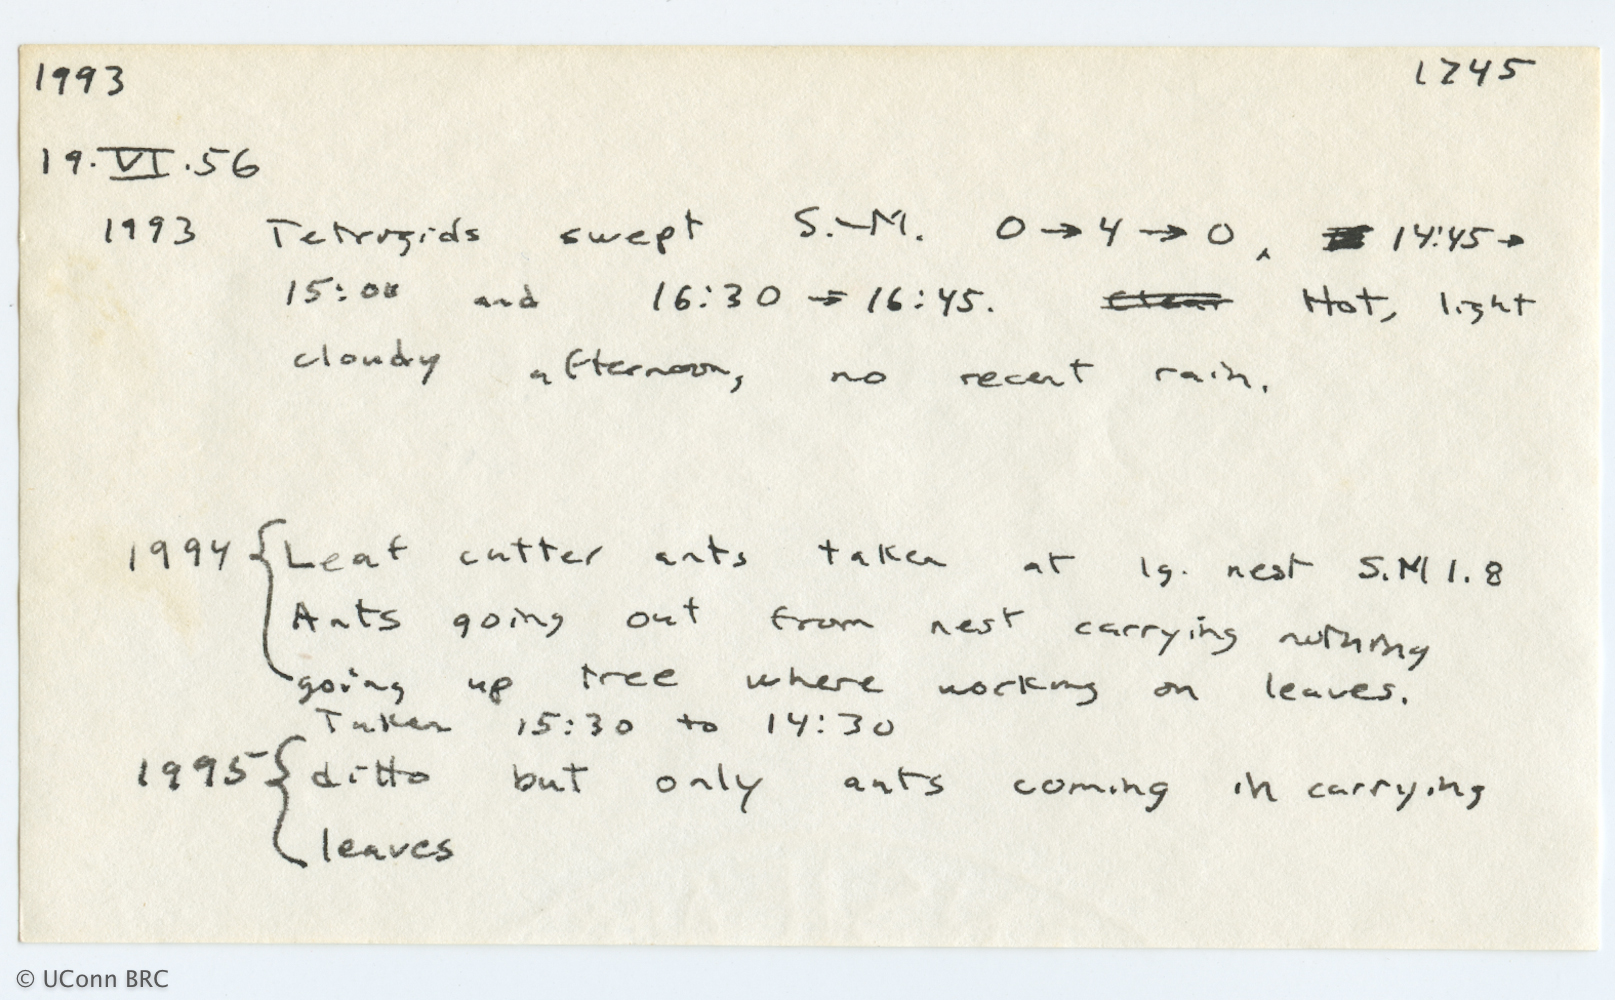 1993 1245
19.VI.56
1993 Tetrigids swept S.-M. 0→4→0, 14:45→
15:00 and 16:30→16:45. Hot, light
cloudy afternoon, no recent rain.
1994 { Leaf cutter ants taken at lg. nest S.M 1.8
Ants going out from nest carrying nothing
going up tree where working on leaves.
Taken 15:30 to 14:30
1995 { ditto but only ants coming in carrying
leaves
© UConn BRC